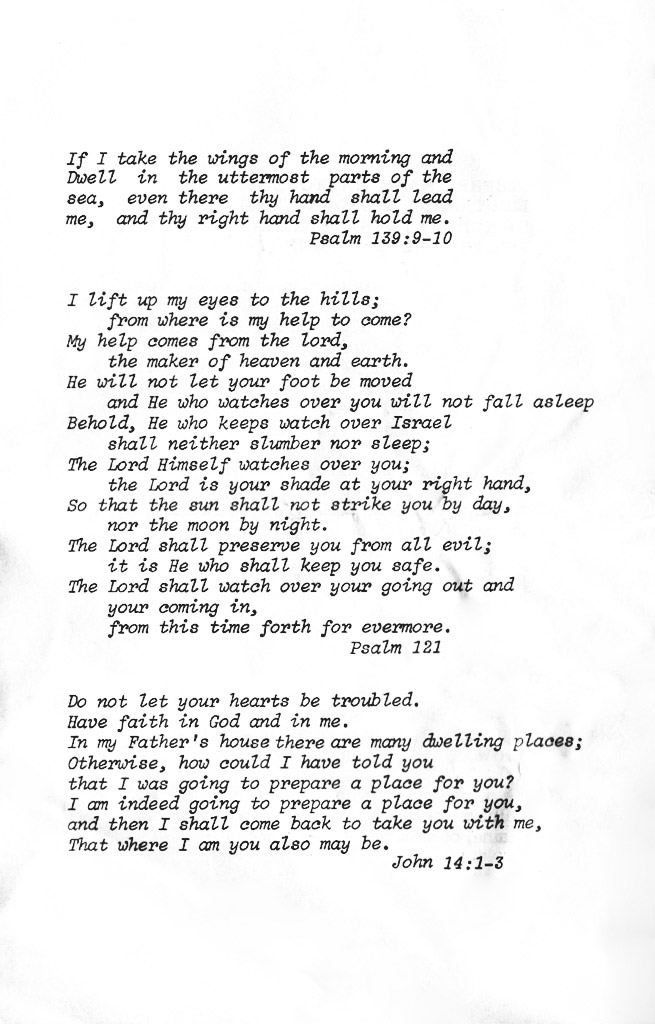 If I take the wings of the morning and
Dwell in the uttermost parts of the
sea, even there thy hand shall lead
me, and thy right hand shall hold me.
Psalm 139:9-10
I lift up my eyes to the hills;
from where is my help to come?
My help comes from the lord,
the maker of heaven and earth.
He will not let your foot be moved
and He who watches over you will not fall asleep
Behold, He who keeps watch over Israel
shall neither slumber nor sleep;
The Lord Himself watches over you;
the Lord is your shade at your right hand,
So that the sun shall not strike you by day,
nor the moon by night.
The Lord shall preserve you from all evil;
it is He who shall keep you safe.
The Lord shall watch over your going out and
your coming in,
from this time forth for evermore.
Psalm 121
Do not let your hearts be troubled.
Have faith in God and in me.
In my Father's house there are many dwelling places;
Otherwise, how could I have told you
that I was going to prepare a place for you?
I am indeed going to prepare a place for you,
and then I shall come back to take you with me,
That where I am you also may be.
John 14:1-3